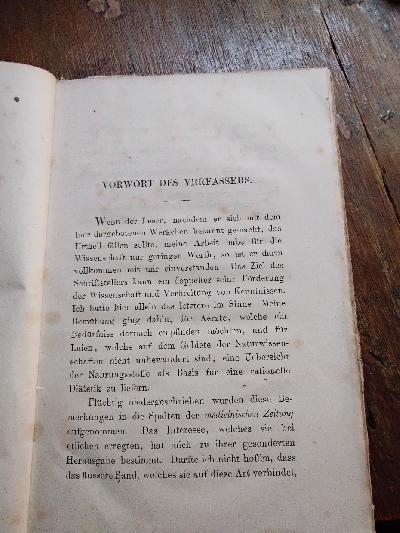 VORWORT DES VERFASSERS.
Wenn der Leser, nachdem er sich mit dem
hier dargebotenen Werkchen bekannt gemacht, das
Urtheil fällen sollte, meine Arbeit habe für die
Wissenschaft nur geringen Werth, so ist er darin
vollkommen mit mir einverstanden. Das Ziel des
Schriftstellers kann ein doppeltes sein: Förderung
der Wissenschaft und Verbreitung von Kenntnissen.
Ich hatte hier allein das letztere im Sinne. Meine
Bemühung ging dahin, für Aerzte, welche ein
Bedürfniss darnach empfinden möchten, und für
Laien, welche auf dem Gebiete der Naturwissen-
schaften nicht unbewandert sind, eine Uebersicht
der Nahrungsstoffe als Basis für eine rationelle
Diätetik zu liefern.
Flüchtig niedergeschrieben wurden diese Be-
merkungen in die Spalten der medicinischen Zeitung
aufgenommen. Das Interesse, welches sie bei
etlichen erregten, hat mich zu ihrer gesonderten
Herausgabe bestimmt. Dürfte ich nicht hoffen, dass
das äussere Band, welches sie auf diese Art verbindet,